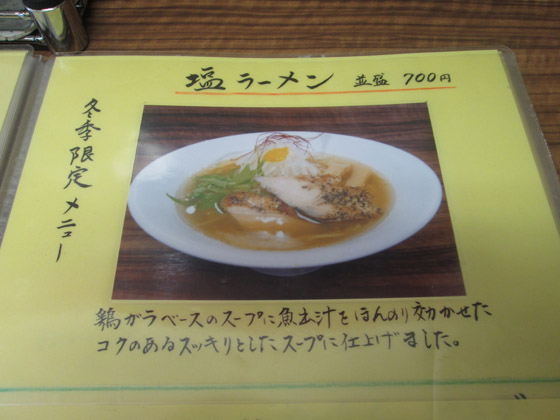 塩ラーメン 並盛 700円
冬季限定メニュー
鶏ガラベースのスープに魚出汁をほんのり効かせた
コクのあるスッキリとしたスープに仕上げました。